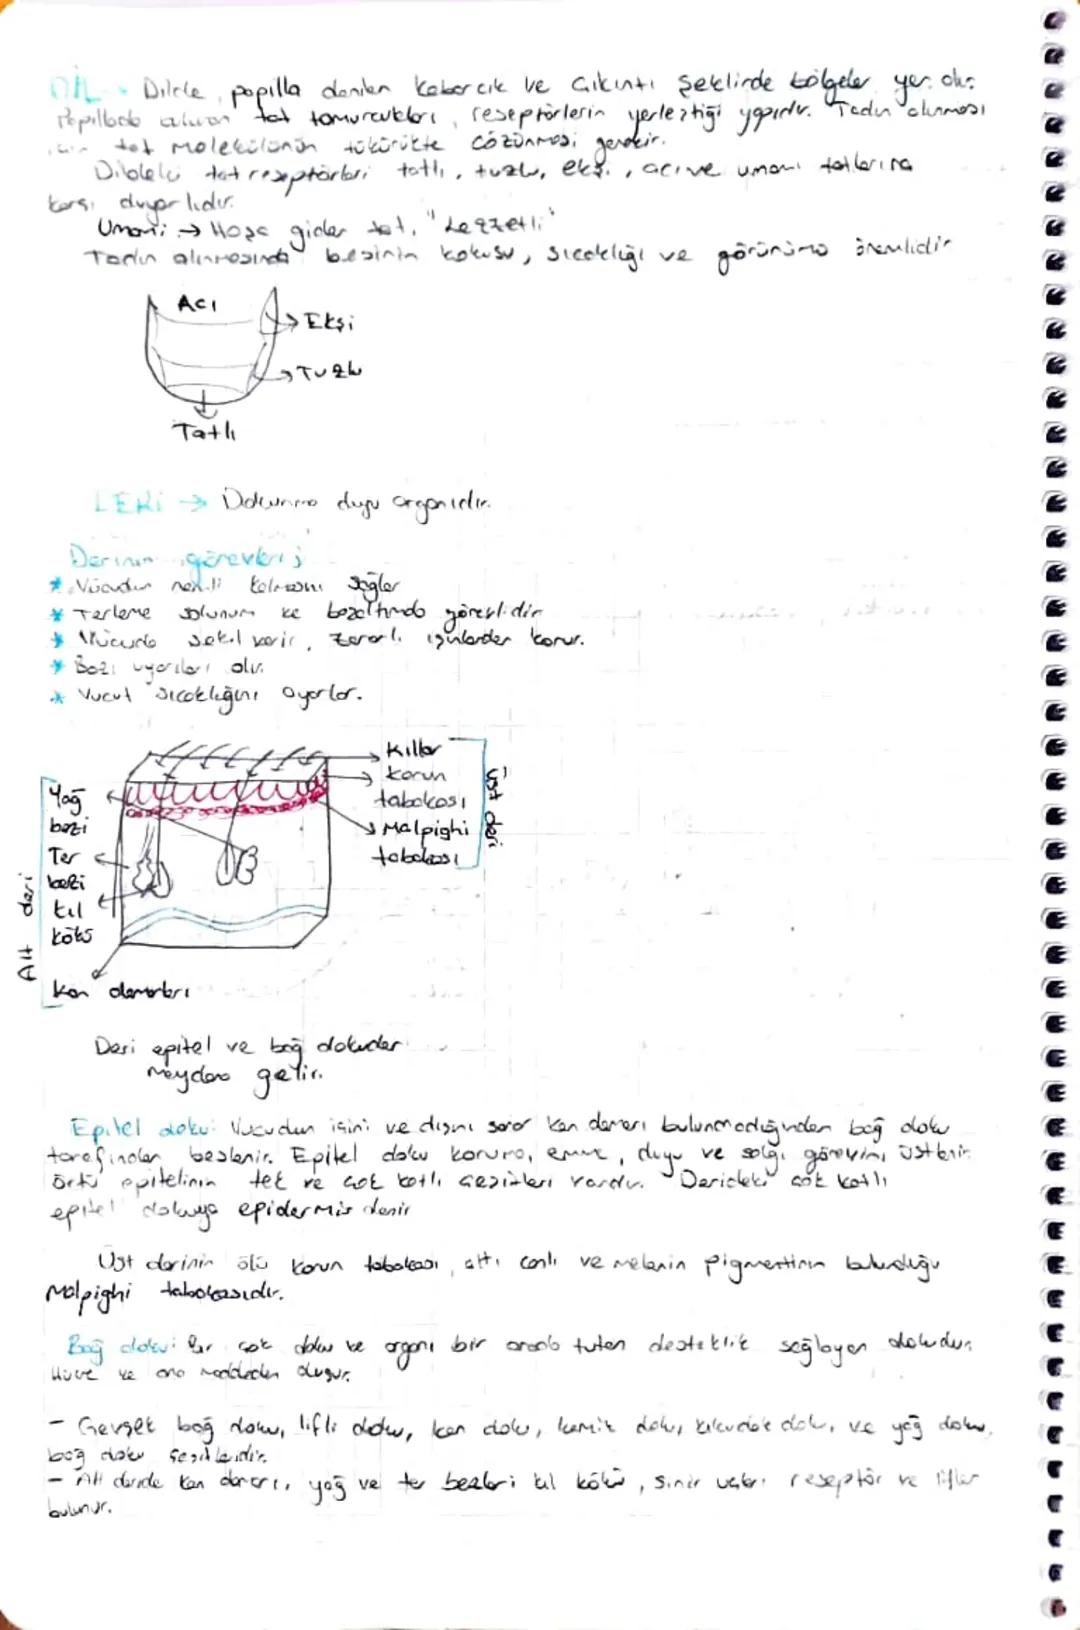 DİL → Dilde, papilla denilen kabarcık ve çıkıntı şeklinde bölgeler yer alır.
Papillada alınan tat tomurcukları, reseptörlerin yerleştiği yapıdır. Tadın alınması
için tat molekülünün tükürükte çözünmesi gerekir.
Dildeki tat reseptörleri tatlı, tuzlu, ekşi, acı ve umami tatlarına
karşı duyarlıdır.
Umami → Hoşa gider tat, "Lezzetli"
Tadın alınmasında besinin kokusu, sıcaklığı ve görünümü önemlidir
Acı
Ekşi
Tuzlu
Tatlı
DERİ → Dokunma duyu organıdır.
Derinin görevleri;
* Vücudun nemli kalmasını sağlar
* Terleme solunum ve boşaltımda görevlidir
* Vücuda şekil verir, zararlı ışınlardan korur.
* Bazı uyarıları alır.
* Vücut sıcaklığını ayarlar.
Kıllar
Korun tabakası
Malpighi tabakası
Üst deri
Yağ bezi
Ter bezi
kıl kökü
Kan damarları
Alt deri
Deri epitel ve bağ dokudan
meydana gelir.
Epitel doku: Vücudun içini ve dışını sarar kan damarı bulunmadığından bağ doku
tarafından beslenir. Epitel doku koruma, emme, duyu ve salgı görevini üstlenir.
Örtü epitelinin tek ve çok katlı çeşitleri vardır. Derideki çok katlı
epitel dokuya epidermis denir
Üst derinin ölü korun tabakası, altı canlı ve melanin pigmentinin bulunduğu
Malpighi tabakasıdır.
Bağ doku: Bir çok doku ve organı bir arada tutan desteklik sağlayan dokudur.
Hücre ve ara maddeden oluşur.
- Gevşek bağ doku, lifli doku, kan doku, kemik doku, kıkırdak doku, ve yağ doku
bağ doku çeşitleridir.
- Alt deride kan damarı, yağ ve ter bezleri kıl kökü, sinir uçları reseptör ve lifler
bulunur.